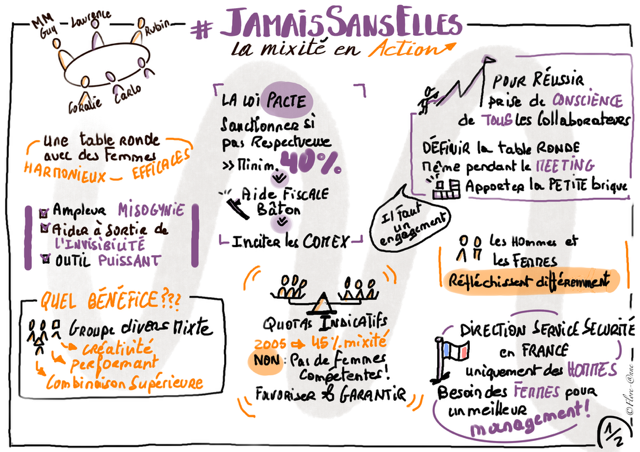 MM
Guy
Laurence
Rubin
Coralie
Carlo
# JAMAISSANSELLES
la mixité en Action
une table ronde
avec des Femmes
HARMONIEUX — EFFICACES
Ampleur MISOGYNIE
Aider à sortir de
l'INVISIBILITÉ
OUTIL PUISSANT
QUEL BÉNÉFICE???
Groupe divers Mixte
créativité
performant
Combinaison Supérieure
LA LOI PACTE
Sanctionner si
pas Respectueuse
>> Minim. 40%
Aide FISCALE
Bâton
Inciter les COMEX
QUOTAS INDICATIFS
2005 → 45% mixité
NON : Pas de femmes
Compétentes!
FAVORISER & GARANTIR
POUR RÉUSSIR
prise de CONSCIENCE
de TOUS les Collaborateurs
DÉFINIR la table RONDE
Même pendant le MEETING
Apporter la PETITE brique
Il faut
un
engagement
les Hommes et
les FEMMES
Réfléchissent différemment
DIRECTION SERVICE SECURITÉ
en FRANCE
uniquement des HOMMES
Besoin des FEMMES pour
un meilleur
management!
1/2